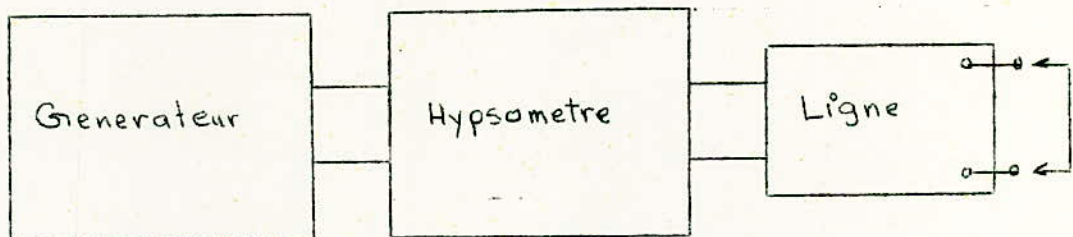 Génerateur
Hypsometre
Ligne